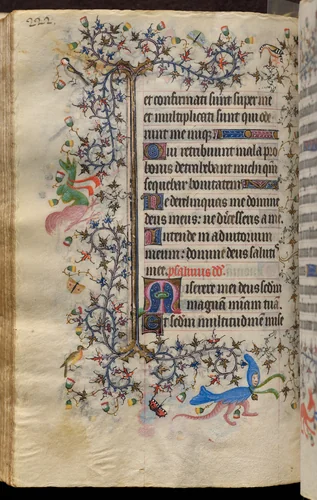 222.
et confirmati sunt super me
et multiplicati sunt qui ode
runt me inique.
Qui retribuunt mala pro
bonis detrahebant michi qm
sequebar bonitatem
Ne derelinquas me domine
deus meus: ne discesseris a me.
Intende in adiutorium
meum: domine deus salutis
mee. psalmus dd.
Miserere mei deus scdm
magnam miam tuā
Et scdm multitudinē mise